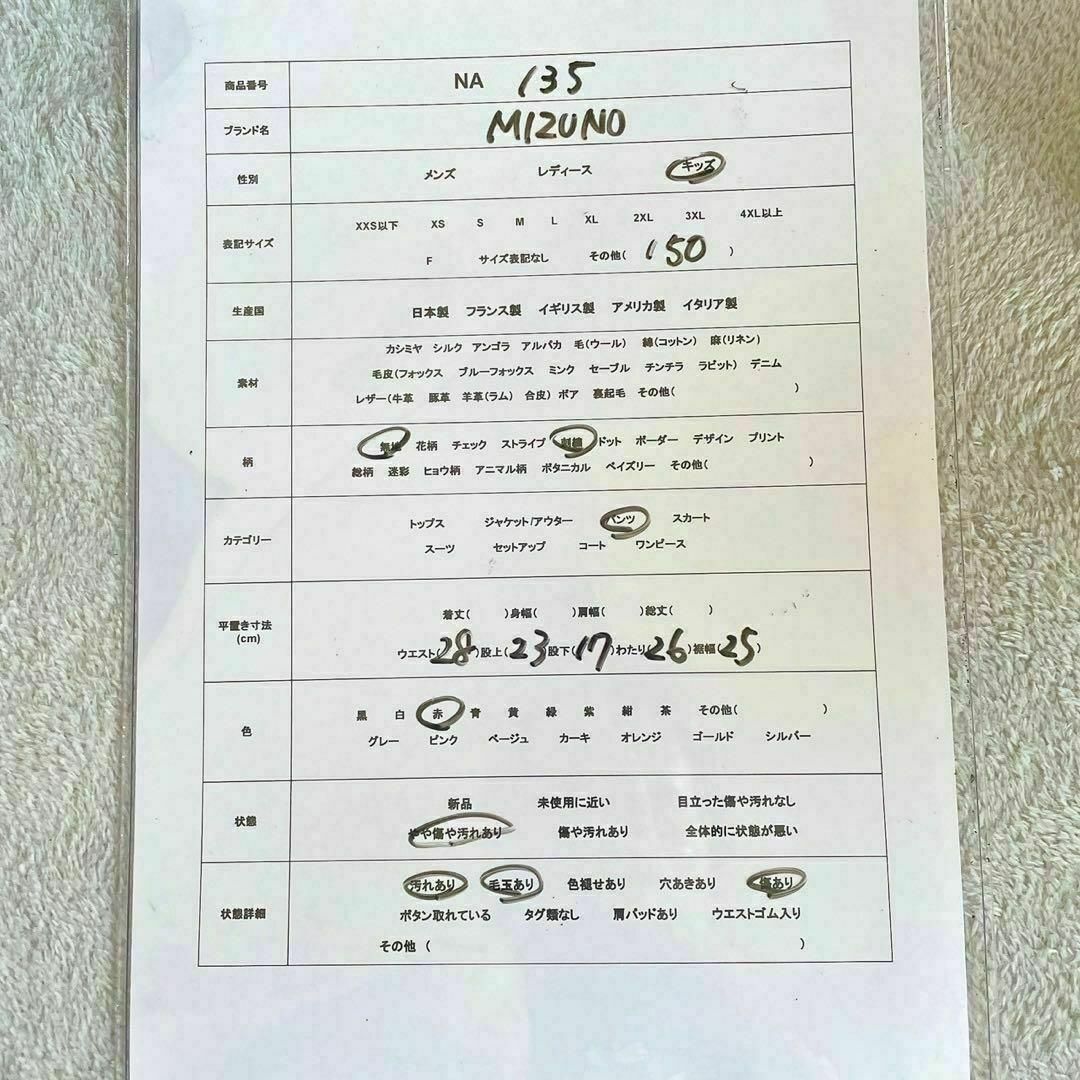 商品番号 NA 135
ブランド名 MIZUNO
性別 メンズ レディース キッズ
表記サイズ
XXS以下 XS S M L XL 2XL 3XL 4XL以上
F サイズ表記なし その他( 150 )
生産国 日本製 フランス製 イギリス製 アメリカ製 イタリア製
素材
カシミヤ シルク アンゴラ アルパカ 毛(ウール) 綿(コットン) 麻(リネン)
毛皮(フォックス ブルーフォックス ミンク セーブル チンチラ ラビット) デニム
レザー(牛革 豚革 羊革(ラム) 合皮) ボア 裏起毛 その他( )
柄
無地 花柄 チェック ストライプ 刺繍 ドット ボーダー デザイン プリント
総柄 迷彩 ヒョウ柄 アニマル柄 ボタニカル ペイズリー その他( )
カテゴリー
トップス ジャケット/アウター パンツ スカート
スーツ セットアップ コート ワンピース
平置き寸法
(cm)
着丈( )身幅( )肩幅( )総丈( )
ウエスト(28)股上(23)股下(17)わたり(26)裾幅(25)
色
黒 白 赤 青 黄 緑 紫 紺 茶 その他( )
グレー ピンク ベージュ カーキ オレンジ ゴールド シルバー
状態
新品 未使用に近い 目立った傷や汚れなし
やや傷や汚れあり 傷や汚れあり 全体的に状態が悪い
状態詳細
汚れあり 毛玉あり 色褪せあり 穴あきあり 傷あり
ボタン取れている タグ類なし 肩パッドあり ウエストゴム入り
その他 ( )